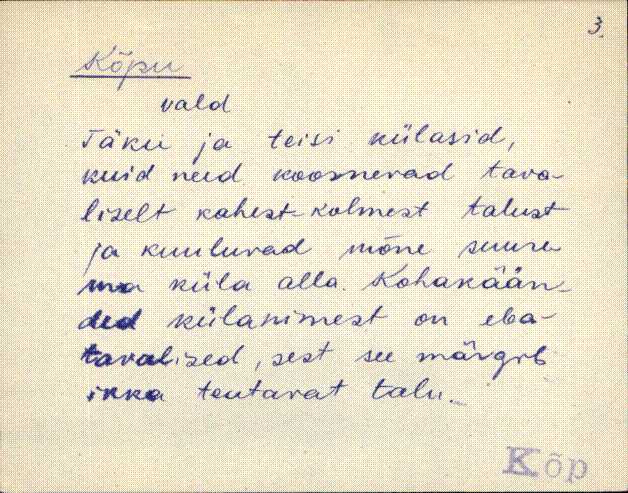 3.
Kõpu
vald
Täku ja teisi külasid,
kuid need koosnevad tava-
liselt kahest-kolmest talust
ja kuuluvad mõne suure-
ma küla alla. Kohakään-
ded külanimest on eba-
tavalised, sest see märgib
ikka teatavat talu.
Kõp